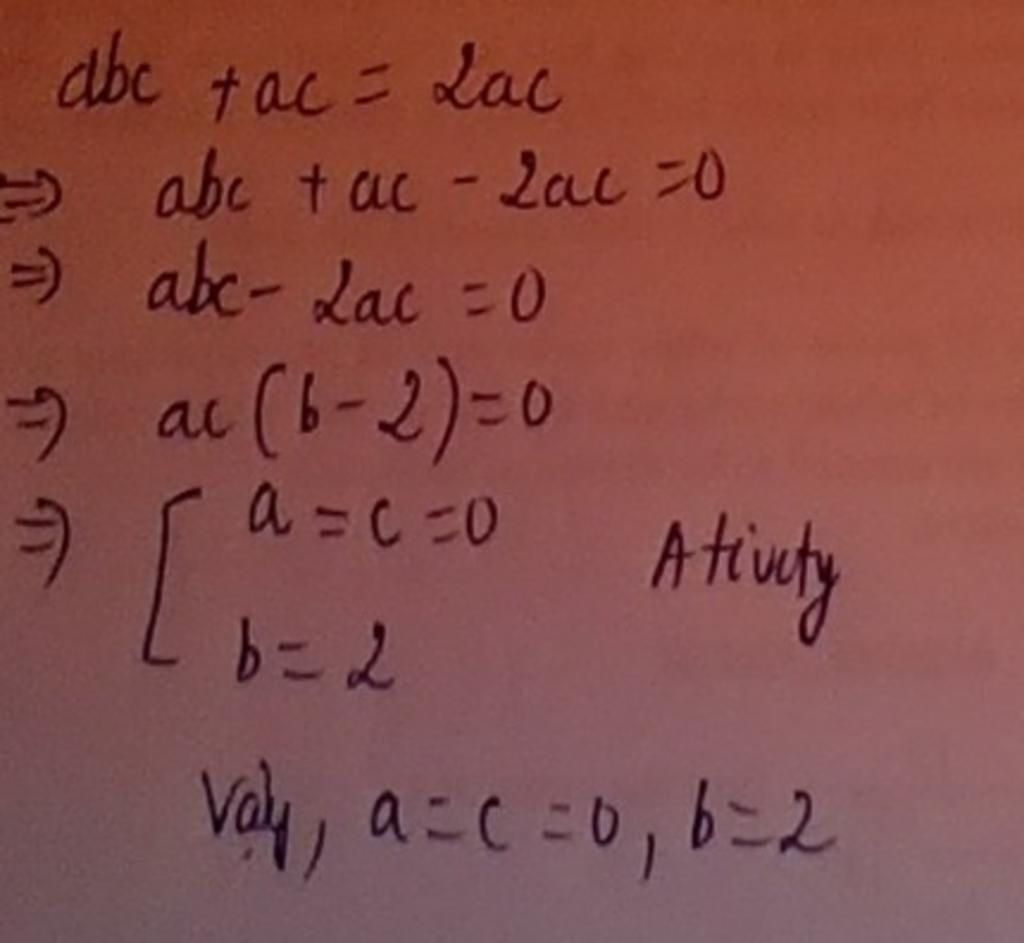 abc + ac = 2ac
⇒ abc + ac - 2ac = 0
⇒ abc - 2ac = 0
⇒ ac (b - 2) = 0
⇒ [ a = c = 0
b = 2
Vậy, a = c = 0, b = 2